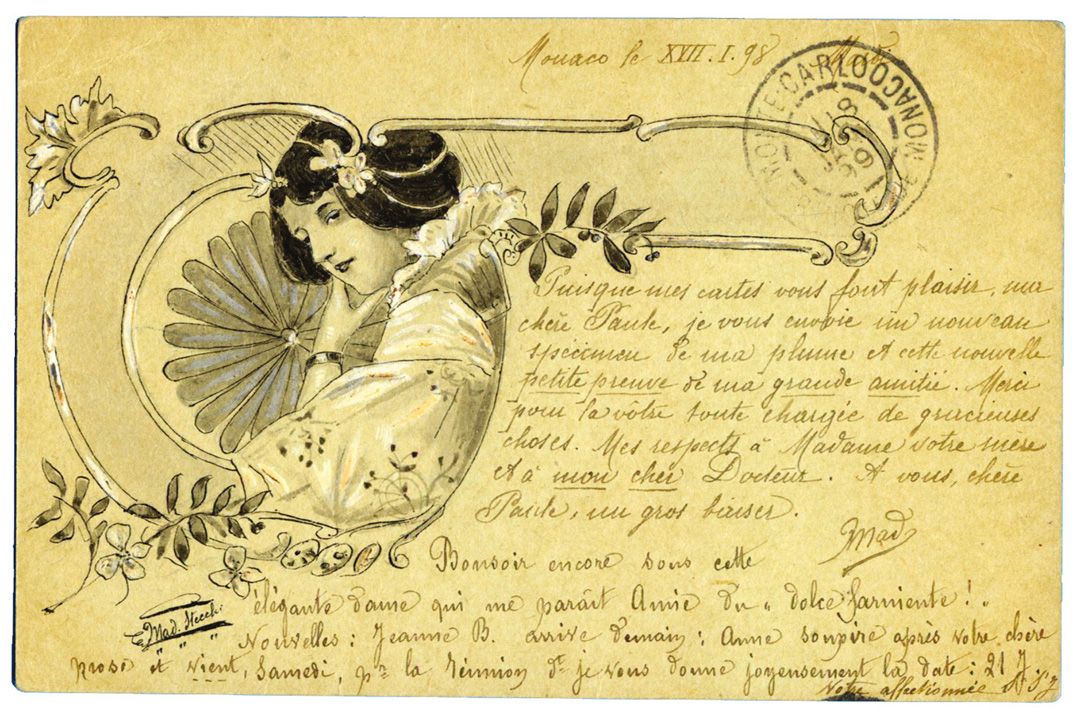 Monaco le XVII.I.98 Mardi
MONTE-CARLO
Puisque mes cartes vous font plaisir, ma
chère Paule, je vous envoie un nouveau
spécimen de ma plume et cette nouvelle
petite preuve de ma grande amitié. Merci
pour la vôtre toute chargée de gracieuses
choses. Mes respects à Madame votre mère
et à mon cher Docteur. A vous, chère
Paule, un gros baiser.
Mad
Bonsoir encore sous cette
élégante dame qui me paraît Amie du „ dolce farniente ! „
Mad. Stecchi
Nouvelles : Jeanne B. arrive demain ; Anne soupire après votre chère
prose et vient, Samedi, pr la réunion dt je vous donne joyeusement la date : 21 J.
Votre affectionnée